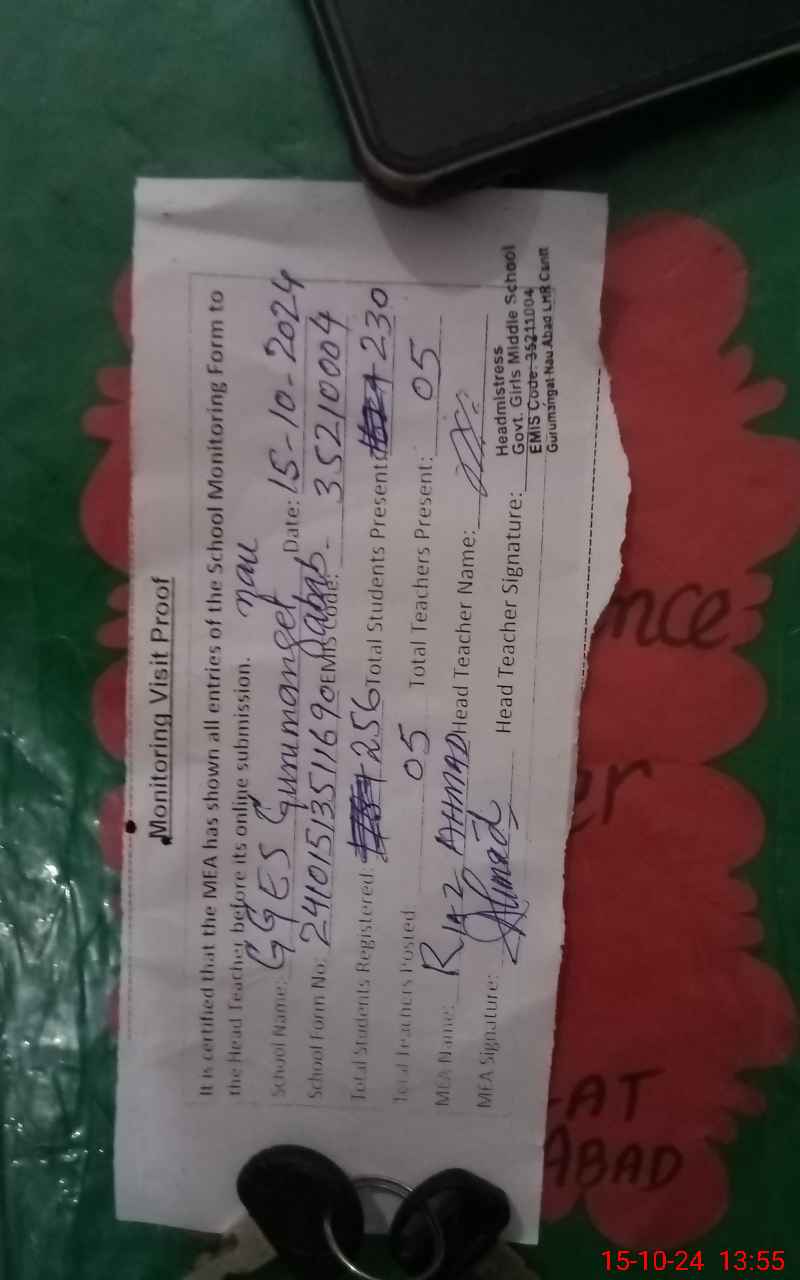 Monitoring Visit Proof
It is certified that the MEA has shown all entries of the School Monitoring Form to
the Head Teacher before its online submission.
School Name: GGES Gurumanget nau abab Date: 15-10-2024
School Form No: 2410151351169 EMIS Code: 35210004
Total Students Registered: 256 Total Students Present: 230
Total Teachers Posted 05 Total Teachers Present: 05
MEA Name: Riaz AHMAD Head Teacher Name:
MEA Signature: Ahmad Head Teacher Signature:
Headmistress
Govt. Girls Middle School
EMIS Code: 35211004
Gurumangat Nau Abad LHR Cantt
nce
er
AT
ABAD
15-10-24 13:55